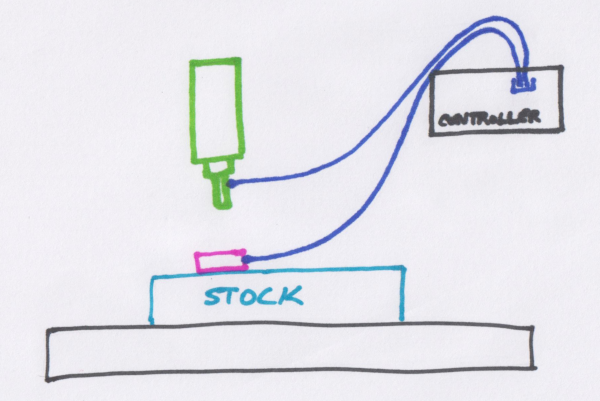 CONTROLLER
STOCK